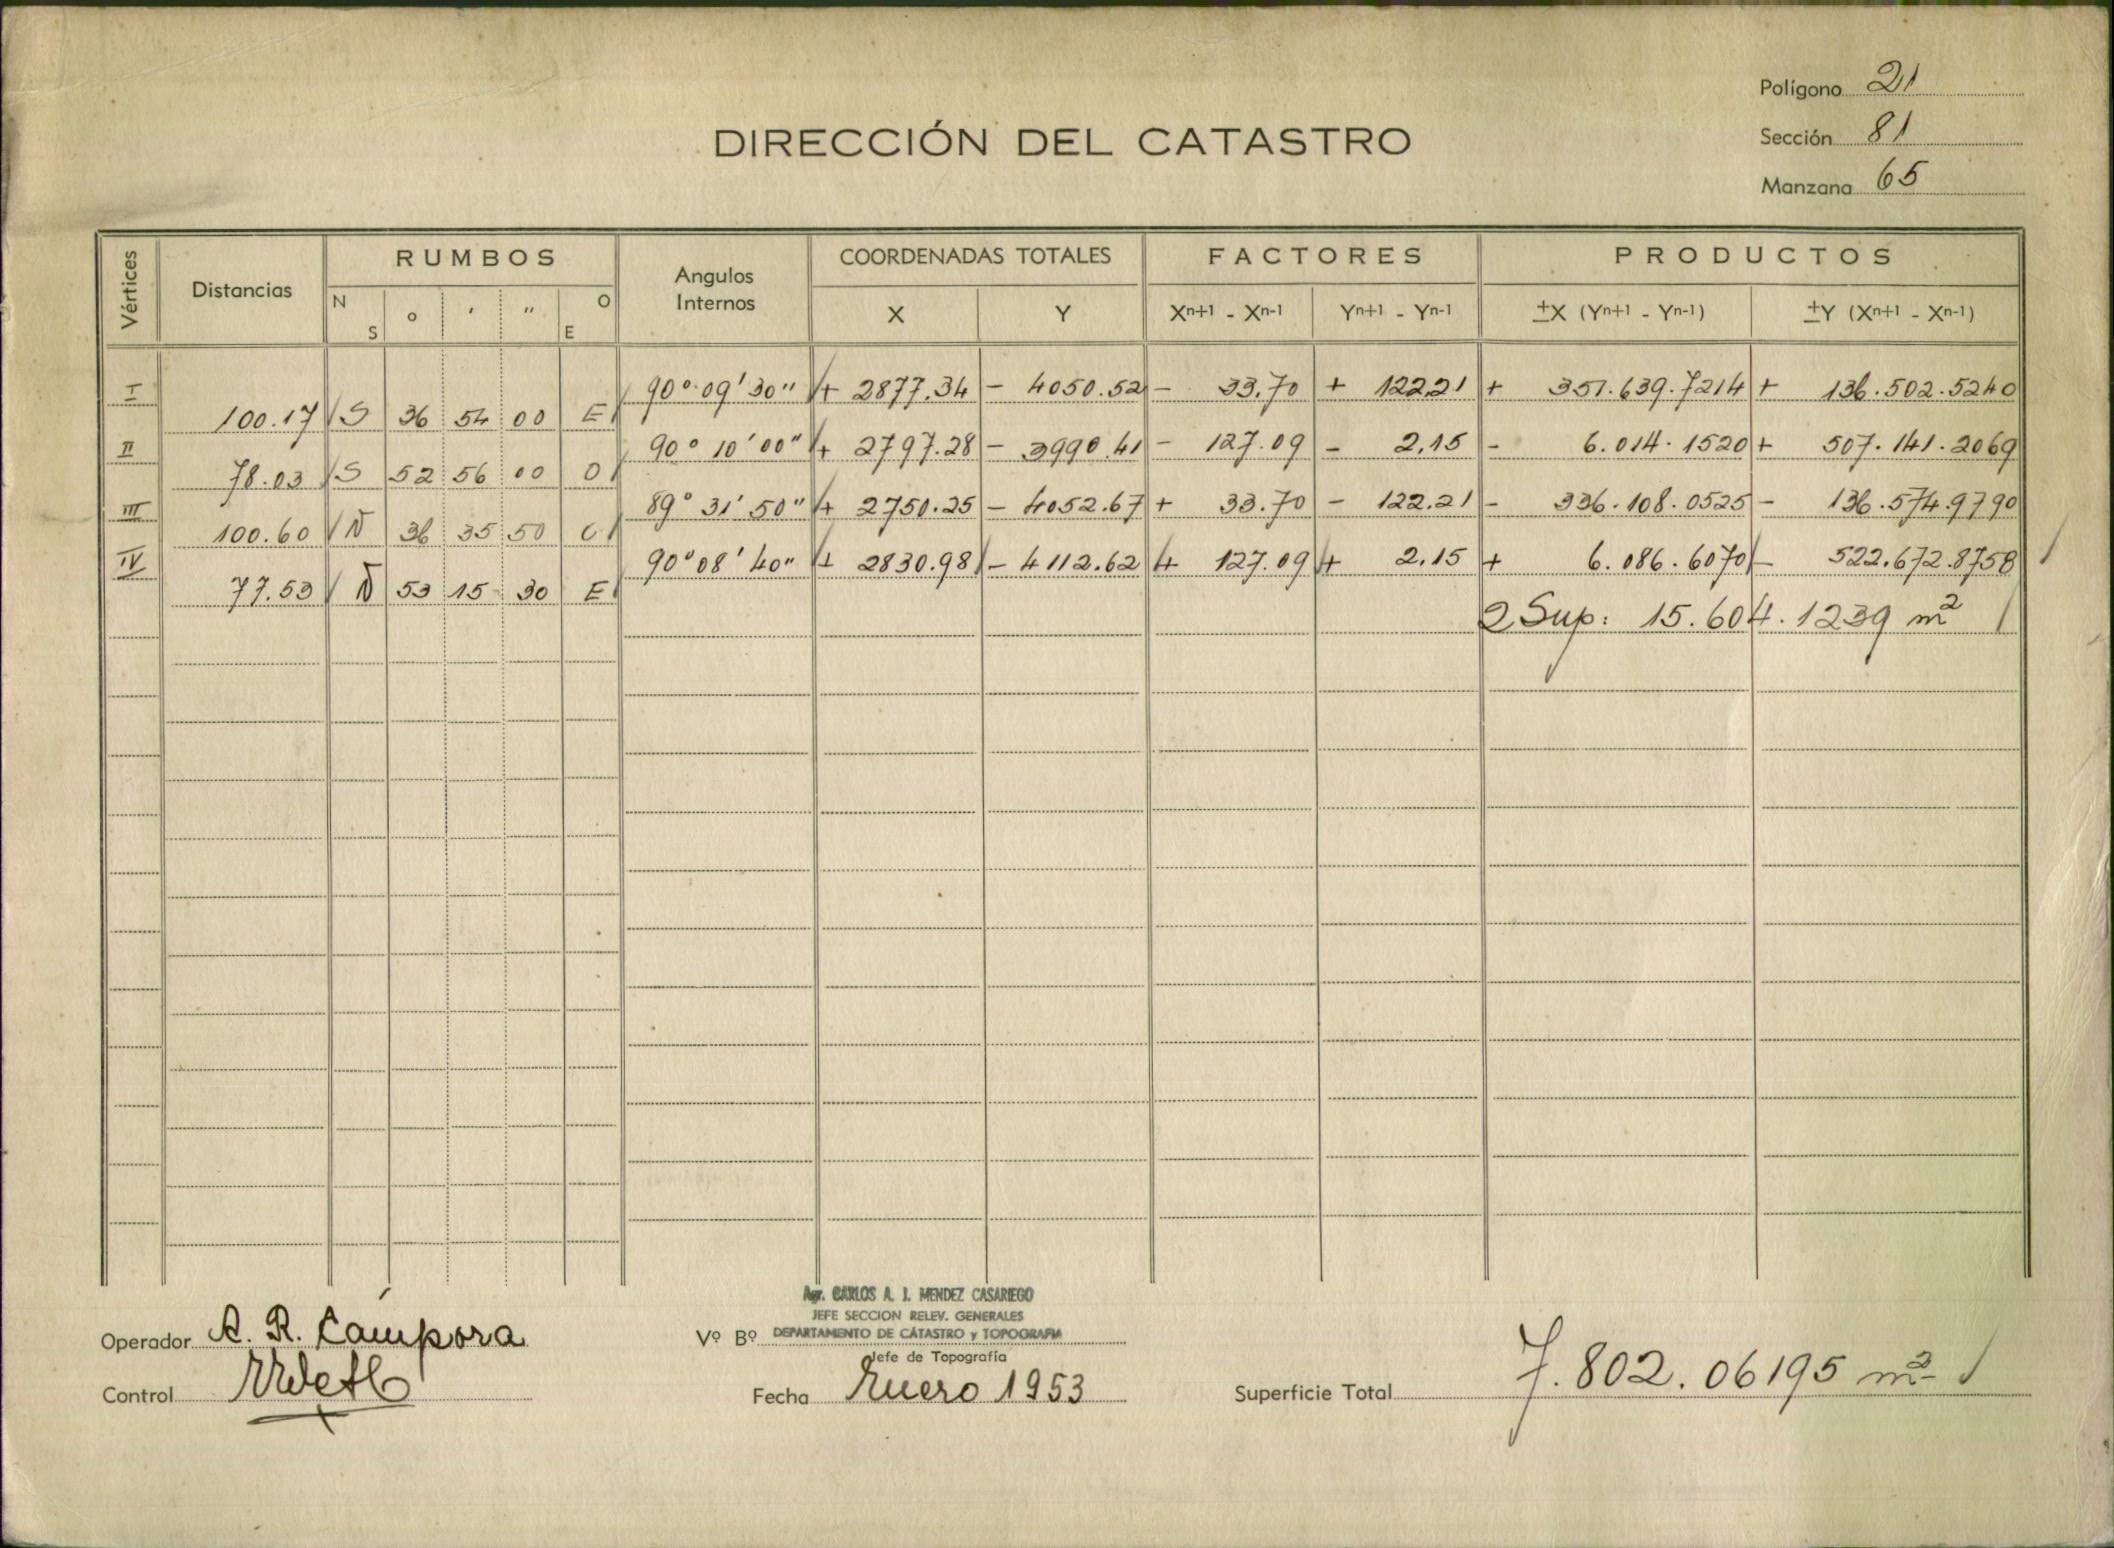 Polígono 21
DIRECCIÓN DEL CATASTRO
Sección 81
Manzana 65
Vértices Distancias RUMBOS Angulos Internos COORDENADAS TOTALES FACTORES PRODUCTOS
N S o ' " O E X Y Xn+1 - Xn-1 Yn+1 - Yn-1 ±X (Yn+1 - Yn-1) ±Y (Xn+1 - Xn-1)
I 90° 09' 30" + 2877.34 - 4050.52 - 33.70 + 122.21 + 351.639.7214 + 136.502.5240
100.17 S 36 54 00 E
II 90° 10' 00" + 2797.28 - 3990.41 - 127.09 - 2.15 - 6.014.1520 + 507.141.2069
78.03 S 52 56 00 O
III 89° 31' 50" + 2750.25 - 4052.67 + 33.70 - 122.21 - 336.108.0525 - 136.574.9790
100.60 N 36 35 50 O
IV 90° 08' 40" + 2830.98 - 4112.62 + 127.09 + 2.15 + 6.086.6070 - 522.672.8758
77.53 N 53 15 30 E
2 Sup: 15.604.1239 m²
Agr. CARLOS A. J. MENDEZ CASARIEGO
JEFE SECCION RELEV. GENERALES
Operador A. R. Cámpora Vº Bº DEPARTAMENTO DE CATASTRO y TOPOGRAFIA
Jefe de Topografía
Control Fecha Enero 1953 Superficie Total 7.802.06195 m²